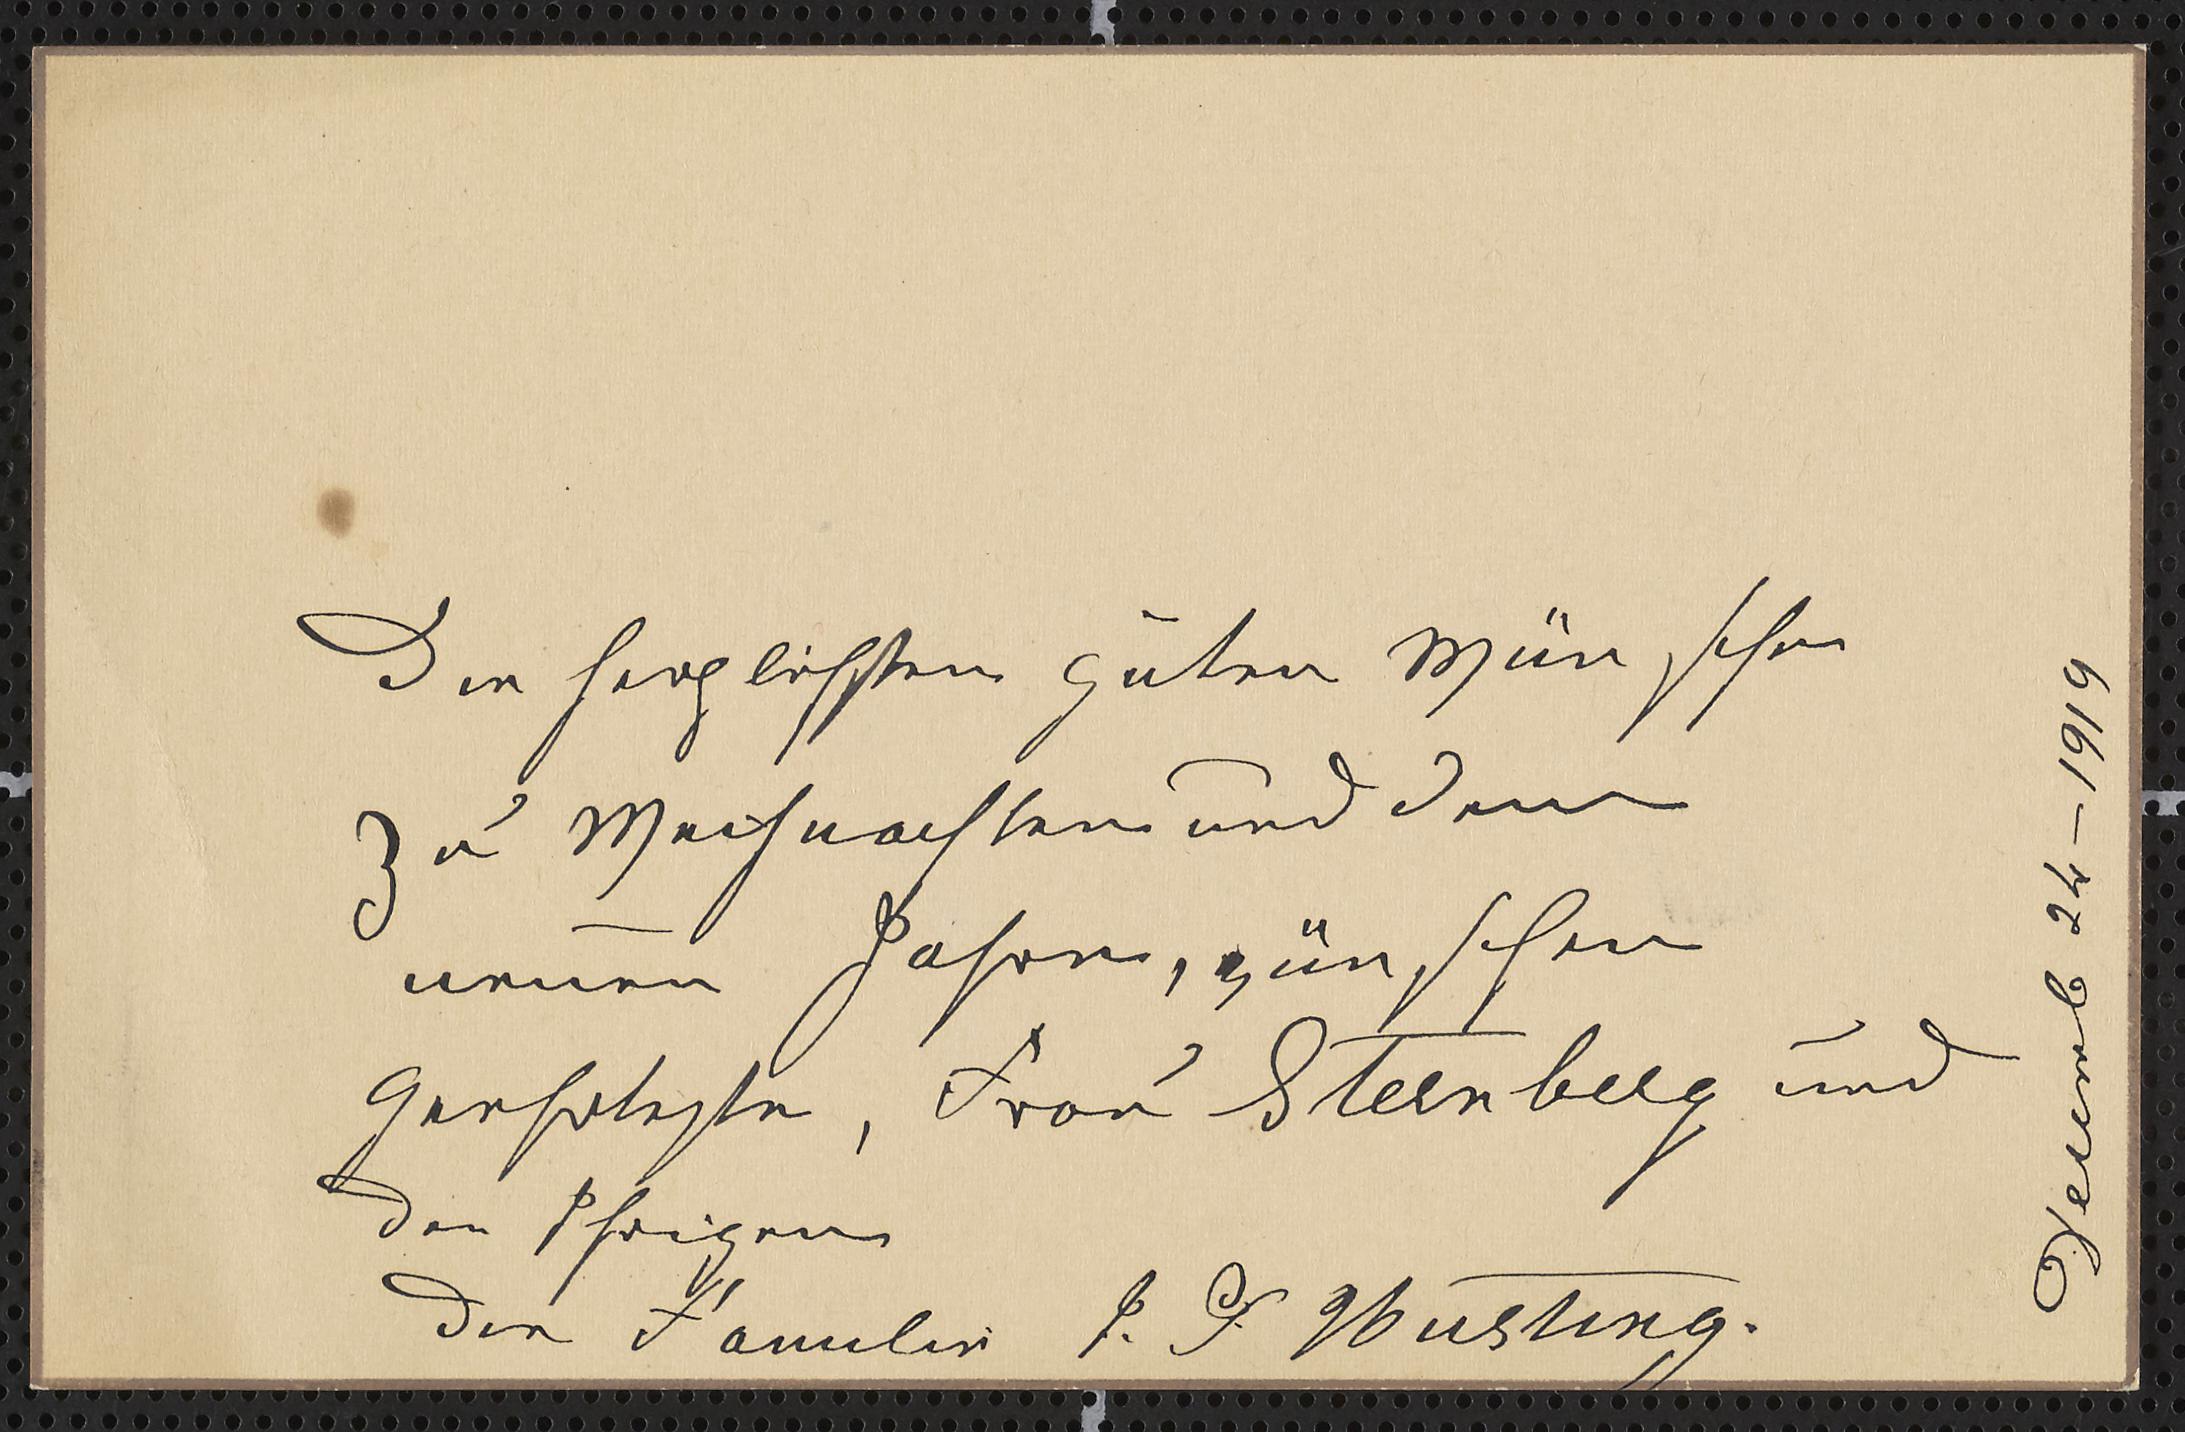 Die herzlichsten guten Wünsche
Zu Weihnachten und dem
neuen Jahre, wünschen
Geehrteste, Frau Sternberg und
den Ihrigen
Die Familie J. F. Husting.
Decemb 24–1919